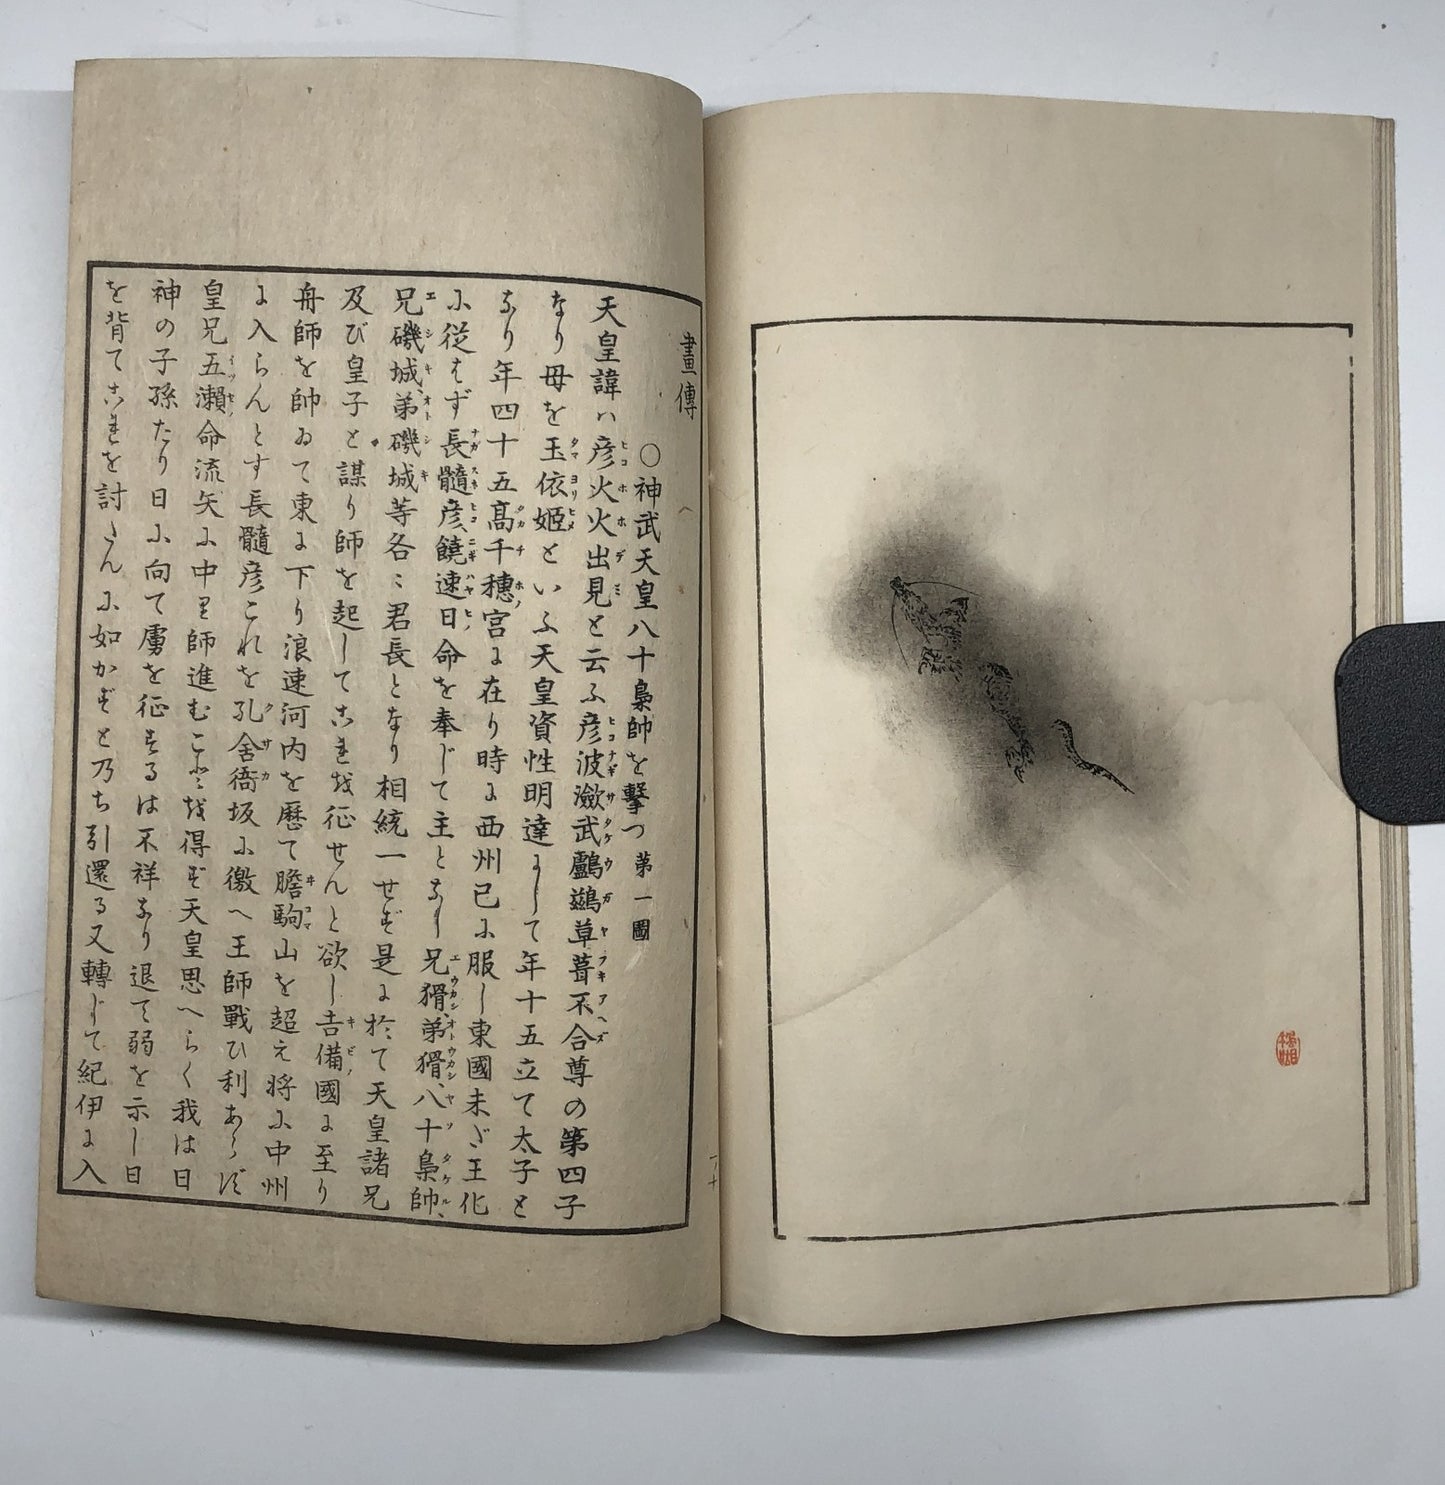 畫傳
○神武天皇八十梟帥を擊つ 第一圖
天皇諱ハ彦火火出見と云ふ彦波瀲武鸕鷀草葺不合尊の第四子
なり母を玉依姫といふ天皇資性明達にして年十五立て太子と
なり年四十五高千穗宮に在り時に西州已に服し東國未だ王化
に從はず長髓彦、饒速日命を奉じて主となし兄猾、弟猾、八十梟帥、
兄磯城、弟磯城等各〻君長となり相統一せず是に於て天皇諸兄
及び皇子と謀り師を起してこれを征せんと欲し吉備國に至り
舟師を帥ゐて東に下り浪速河内を歷て膽駒山を超え將に中州
に入らんとす長髓彦これを孔舍衞坂に徼へ王師戰ひ利あらず
皇兄五瀨命流矢に中り師進むことを得ず天皇思へらく我は日
神の子孫たり日に向て虜を征するは不祥なり退て弱を示し日
を背てこれを討たんに如かずと乃ち引還る又轉じて紀伊に入